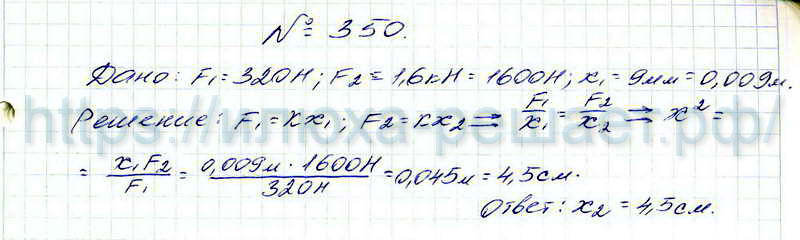 № 350.
Дано: F₁ = 320Н; F₂ = 1,6кН = 1600Н; x₁ = 9мм = 0,009м.
Решение: F₁ = Kx₁; F₂ = Kx₂ ⇒ F₁/x₁ = F₂/x₂ ⇒ x² =
= x₁F₂/F₁ = 0,009м · 1600Н/320Н = 0,045м = 4,5см.
Ответ: x₂ = 4,5см.